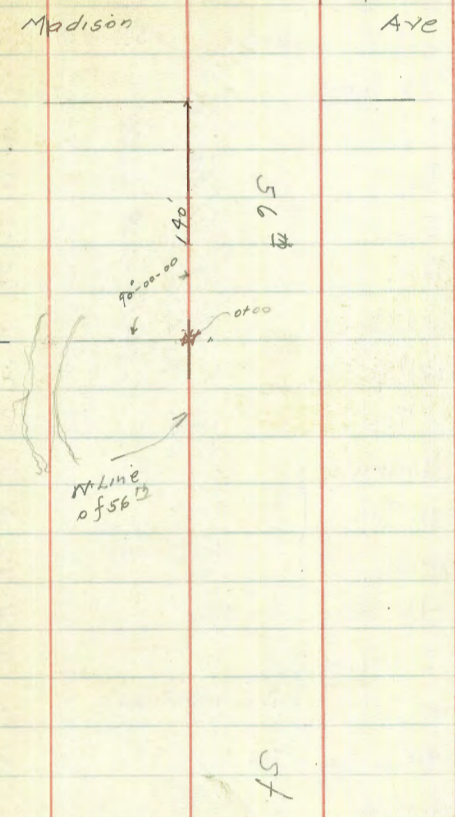 Madison Ave
56 th
140'
90°-00-00
0+00
N. Line
of 56 th
St